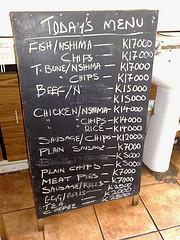 TODAY'S MENU
FISH/NSHIMA — K17000
CHIPS — K17000
T. BONE/NSHIMA — K17000
CHIPS — K17000
BEEF/N — K15000
K15000
CHICKEN/NSHIMA — K14000
" CHIPS — K14000
" RICE — K14000
SAUSAGE/CHIPS — K12000
PLAIN SAUSAGE K7000
K5000
PLAIN CHIPS — K5000
MEAT PIES — K7000
SAUSAGE/ROLLS —
EGG/ROLLS — K2500
TEA
COFFEE